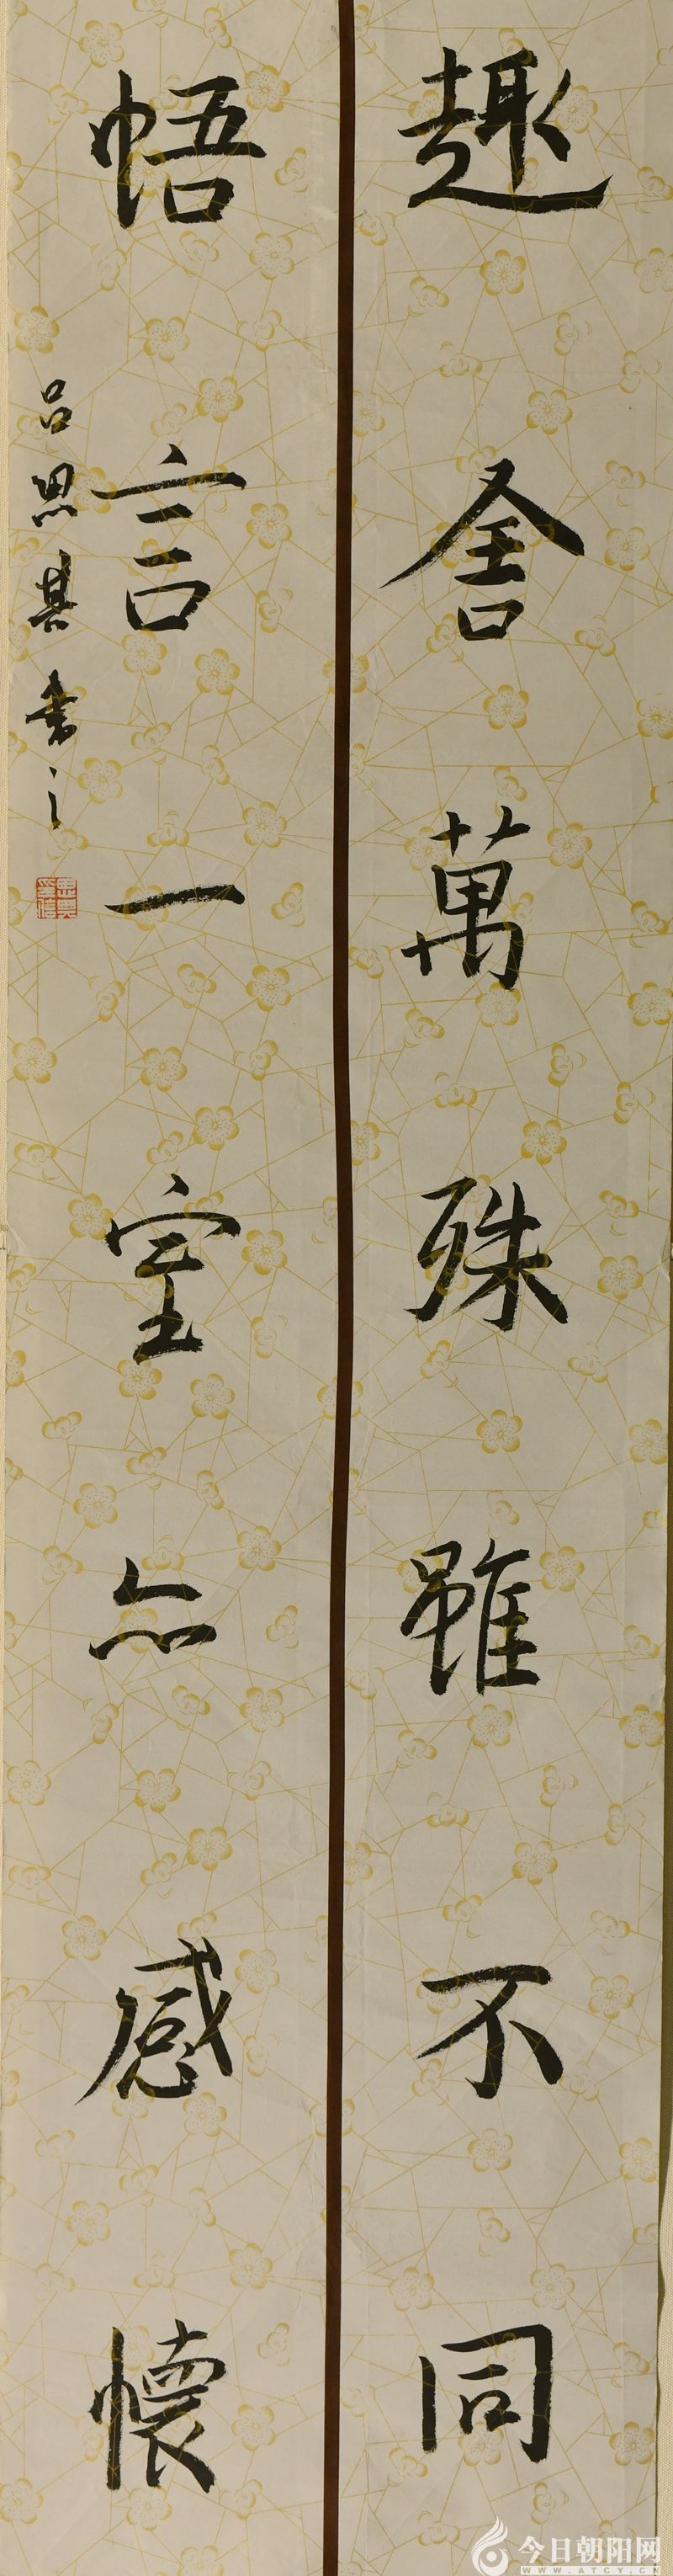 趣舍萬殊雖不同
悟言一室亦感懷
吕思其書之
今日朝阳网
WWW.ATCY.CN